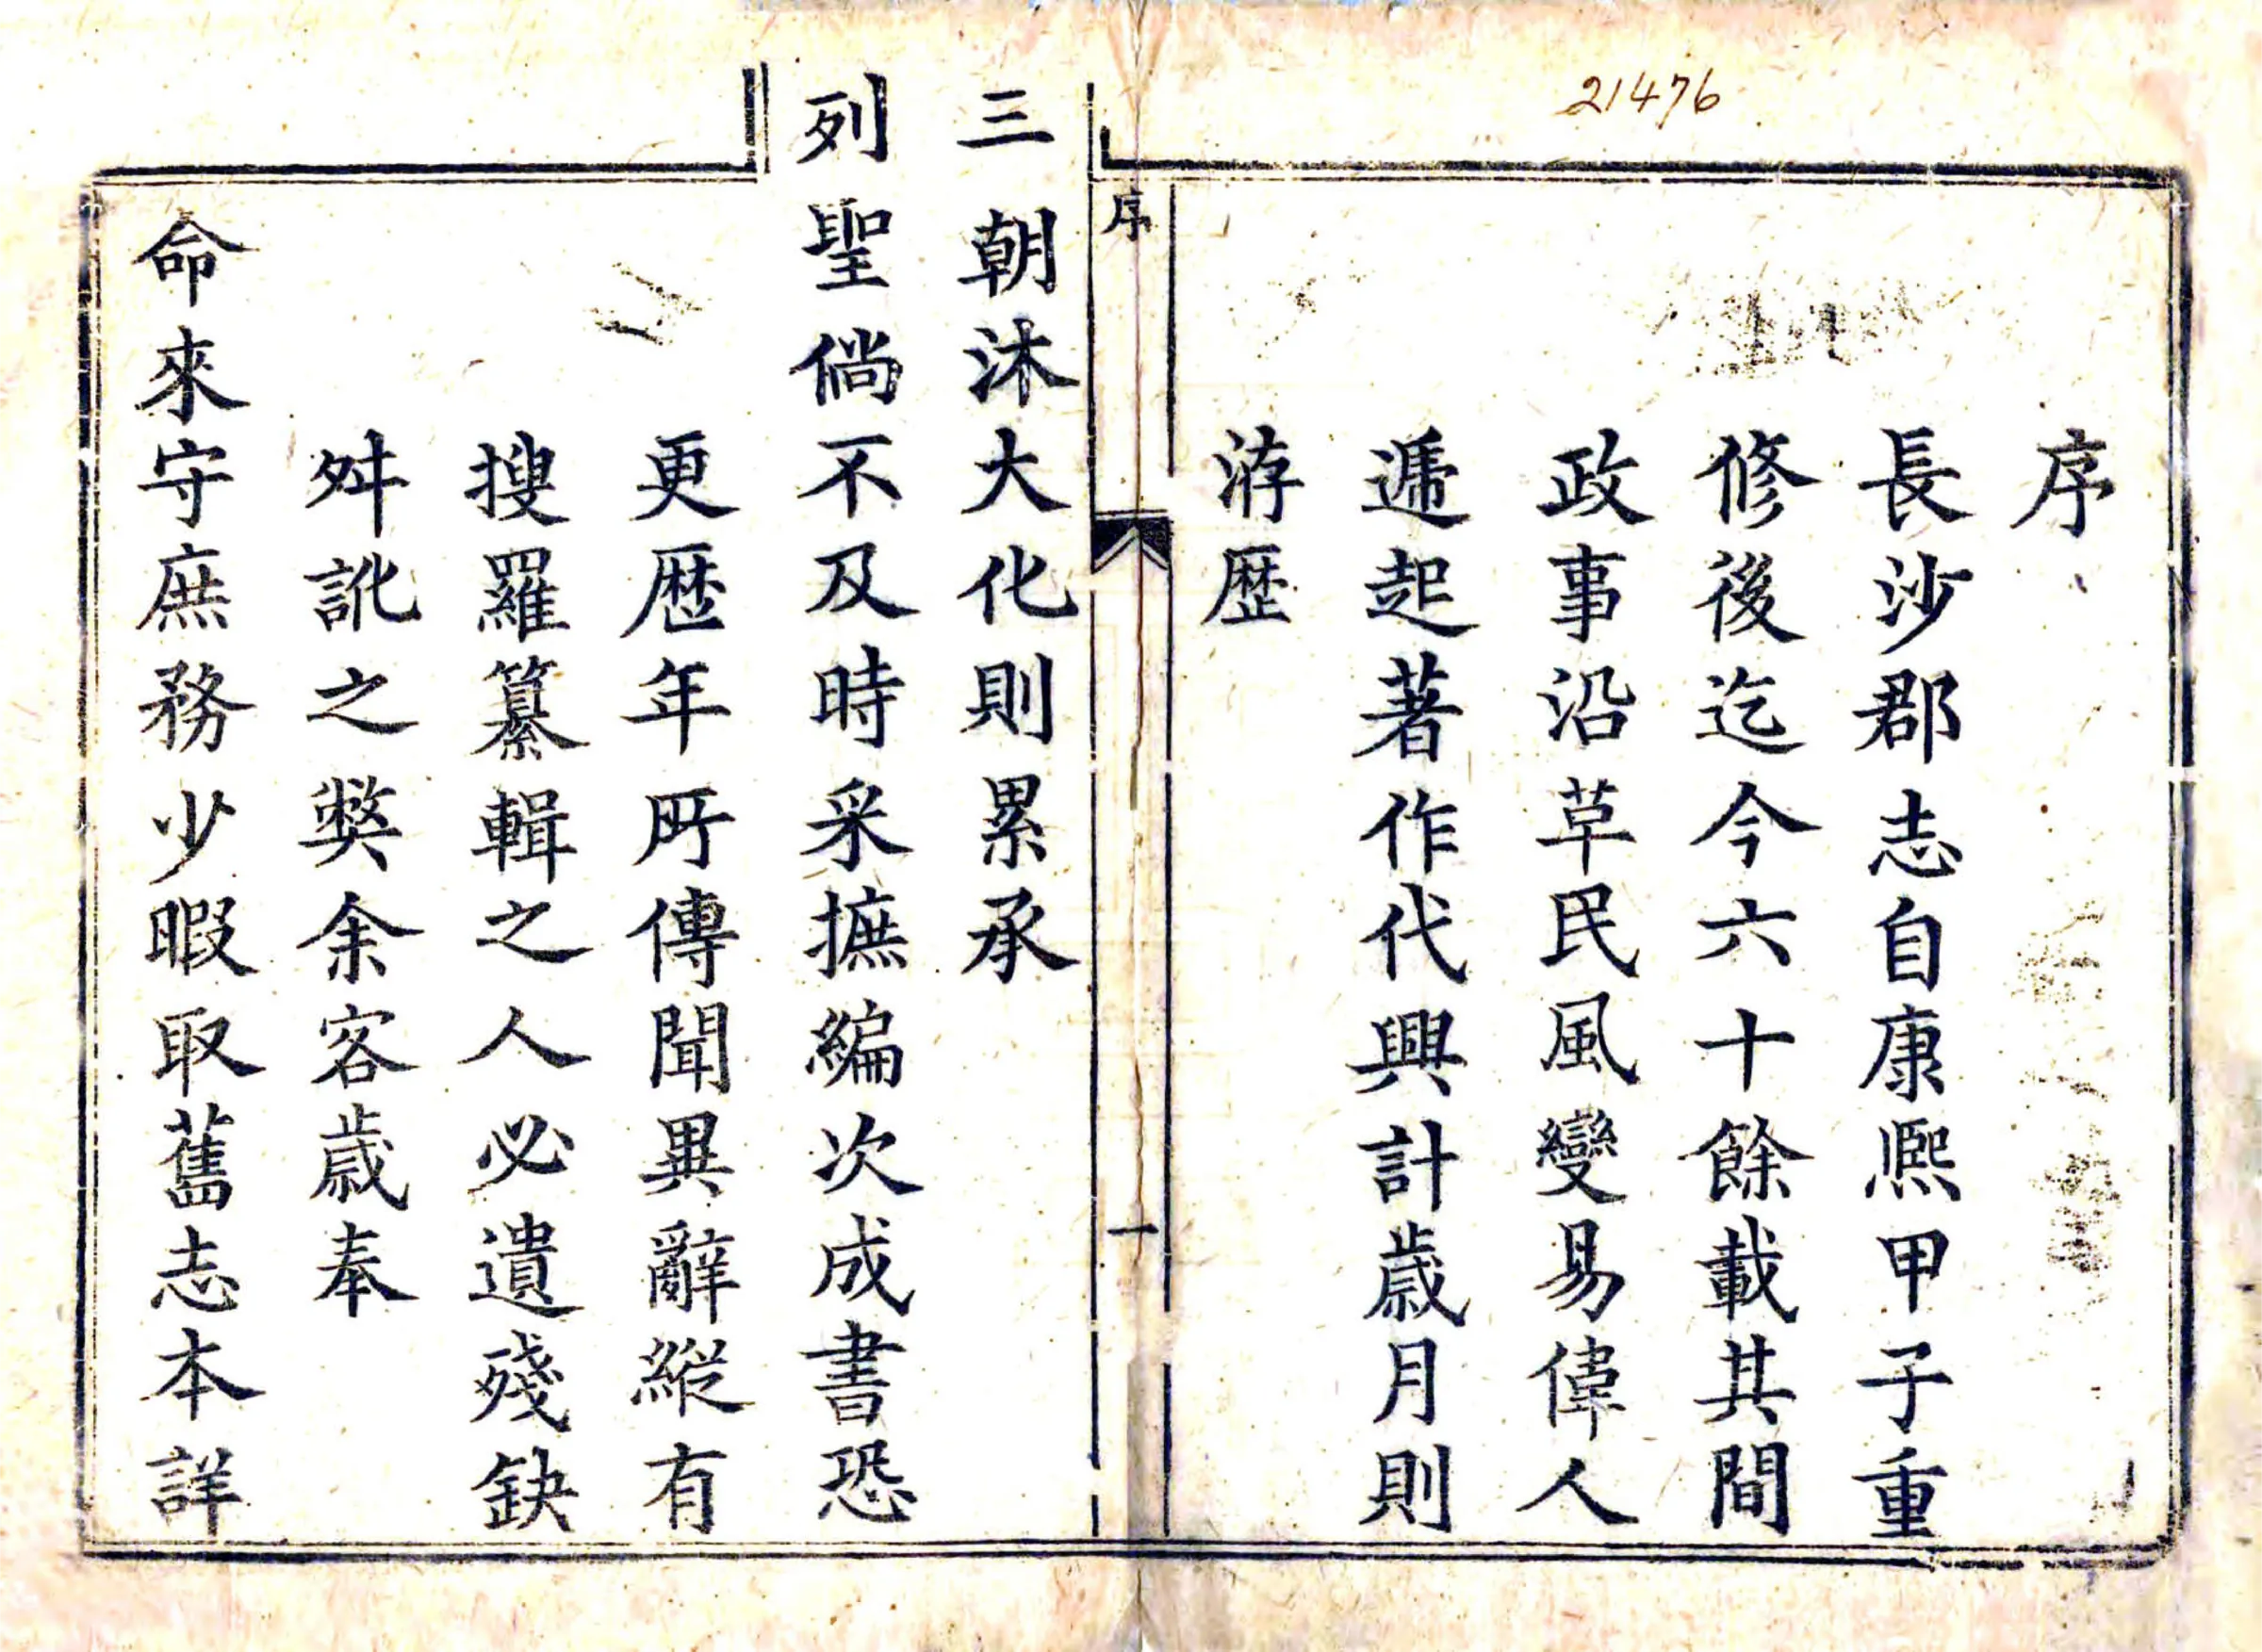 21476
序
長沙郡志自康熈甲子重
修後迄今六十餘載其間
政事沿草民風變易偉人
遞起著作代興計歲月則
洊歷
序
一
三朝沐大化則累承
列聖倘不及時采摭編次成書恐
更歷年所傳聞異辭縱有
搜羅纂輯之人必遺殘缺
舛訛之獘余客歲奉
命來守庶務少暇取舊志本詳